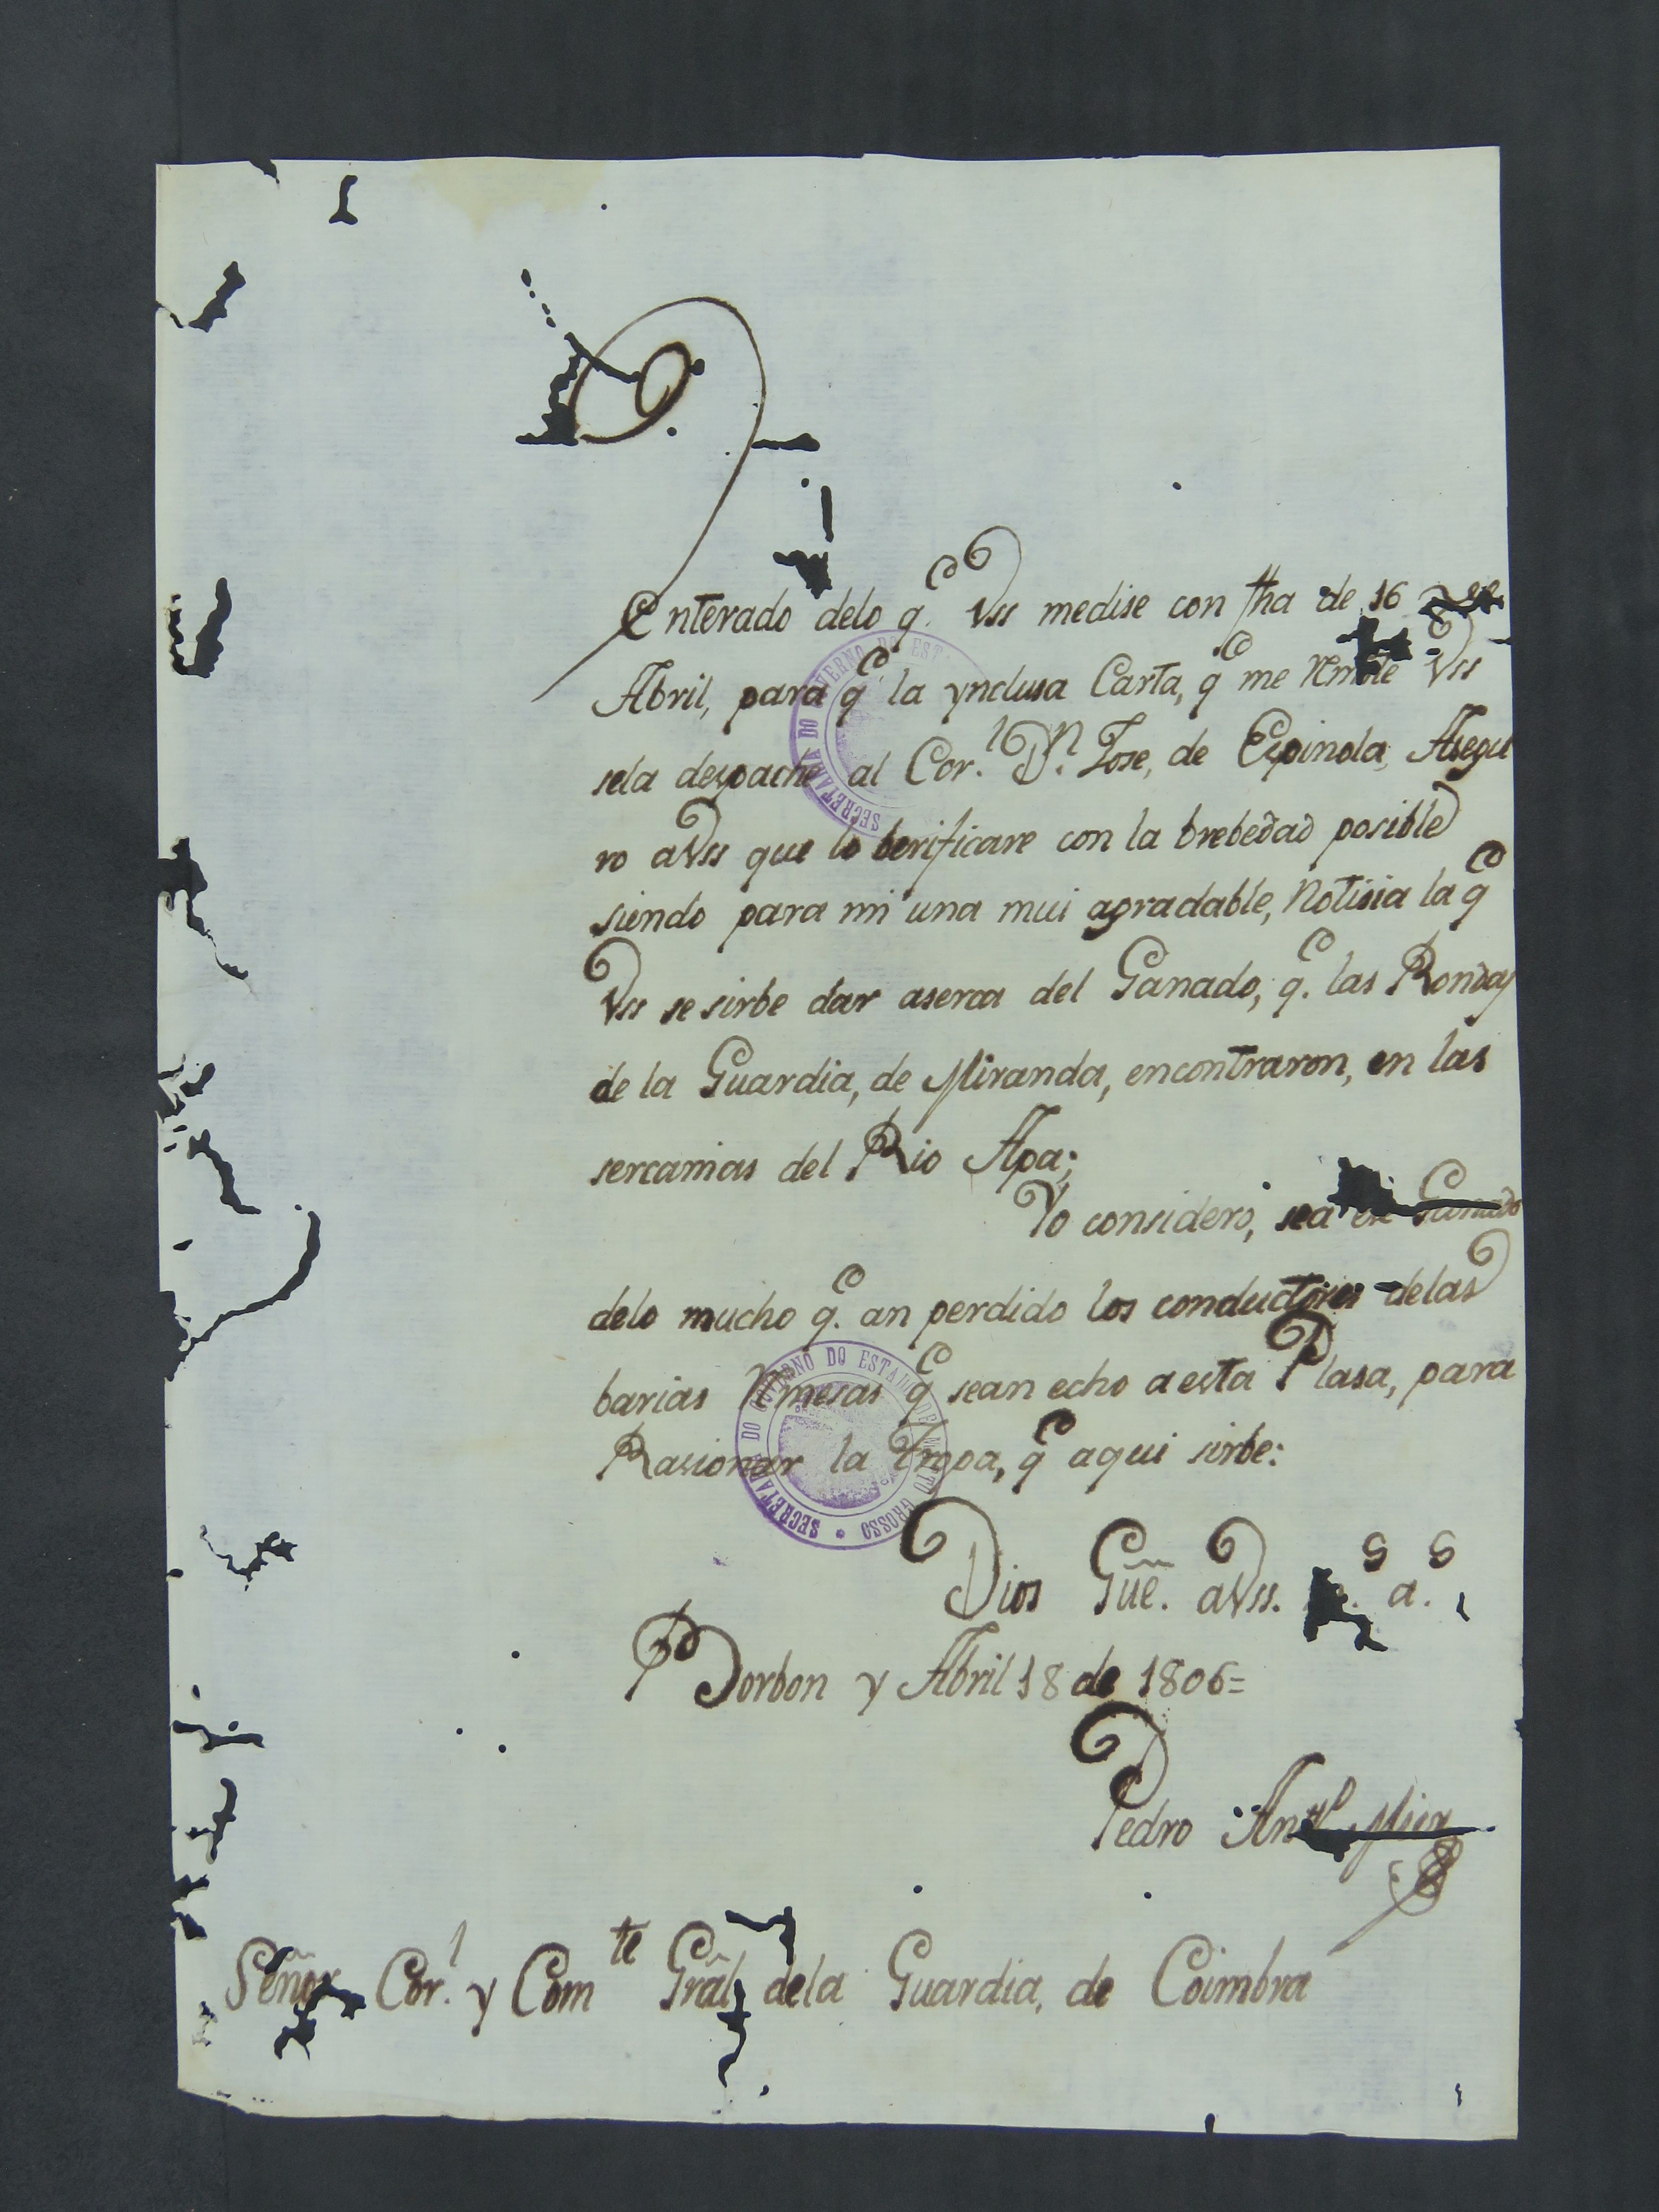 Enterado delo q.e Vss medise con fha de 16 de
Abril, para q.e la ynclusa Carta, q.e me Rmite Vss
sela despache al Cor.l D.n Jose, de Espinola, Asegu
ro aVss que lo berificare con la brebedad posible
siendo para mi una mui agradable, Notisia la q.e
Vss se sirbe dar aserca del Ganado, q.e las Rondas
de la Guardia, de Miranda, encontraron, en las
sercanias del Rio Apa;
Yo considero, sea ese Ganado
delo mucho q.e an perdido los conductores delas
barias Rmesas q.e sean echo a esta Plasa, para
Rasionar la Tropa, q.e aqui sirbe:
Dios Güe. aVss. a.s
Borbon y Abril 18 de 1806=
Pedro Ant.o Mier
Señor Cor.l y Com.te Grâl dela Guardia, de Coimbra
SECRETARIA DO GOVERNO DO EST
SECRETARIA DO GOVERNO DO ESTADO DE MATTO GROSSO